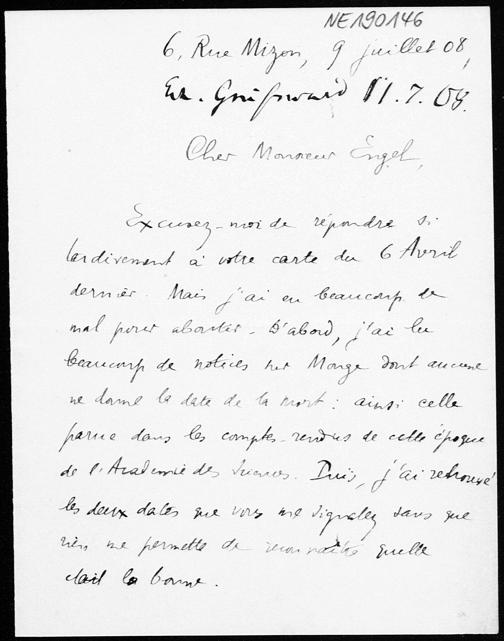 NE190146
6, Rue Mizon, 9 juillet 08,
Er. Greifswald 11.7.08.
Cher Monsieur Engel,
Excusez-moi de répondre si
tardivement à votre carte du 6 Avril
dernier. Mais j'ai eu beaucoup de
mal pour aboutir. D'abord, j'ai lu
beaucoup de notices sur Monge dont aucune
ne donne la date de la mort : ainsi celle
parue dans les comptes-rendus de cette époque
de l'Académie des Sciences. Puis, j'ai retrouvé
les deux dates que vous me signalez sans que
rien me permette de reconnaître quelle
était la bonne.